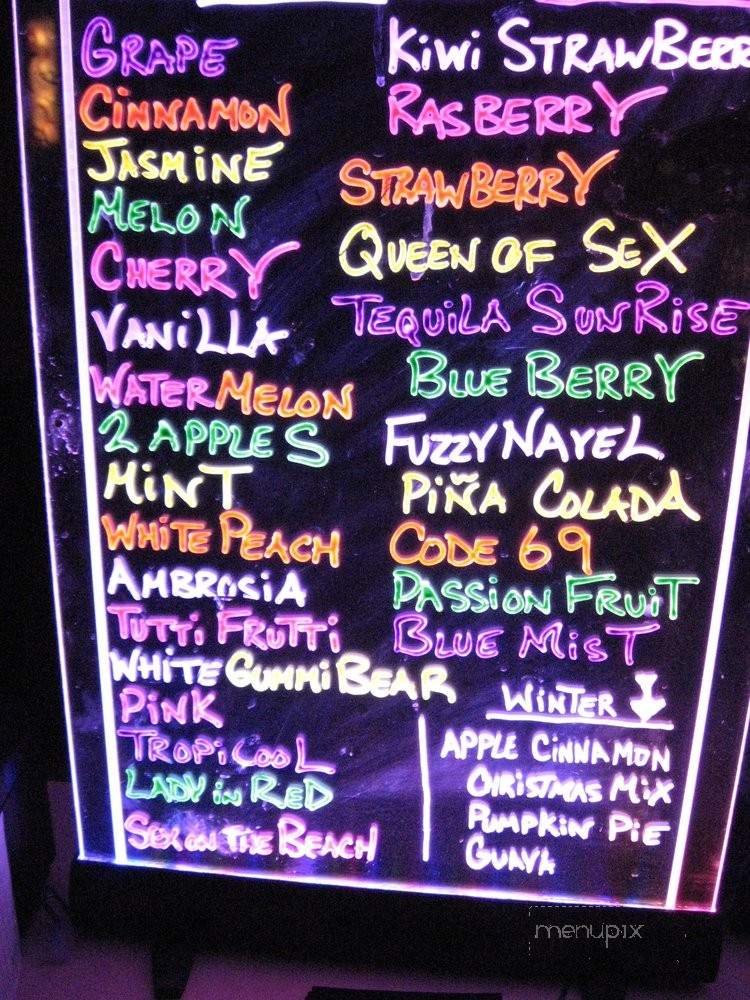 GRAPE
CiNNAMON
JASMiNE
MELON
CHERRY
VANiLLA
WATERMELON
2 APPLES
MiNT
WHiTE PEACH
AMBROSiA
TUTTi FRUTTi
WHiTE GUMMi BEAR
PiNK
TROPiCOOL
LADY iN RED
SEX ON THE BEACH
KiWi STRAWBERR
RASBERRY
STRAWBERRY
QUEEN OF SEX
TEQUiLA SUNRiSE
BLUE BERRY
FUZZY NAVEL
PiÑA COLADA
CODE 69
PASSiON FRUiT
BLUE MiST
WiNTER
APPLE CiNNAMON
CHRISTMAS MiX
PUMPKiN PiE
GUAVA
menupix